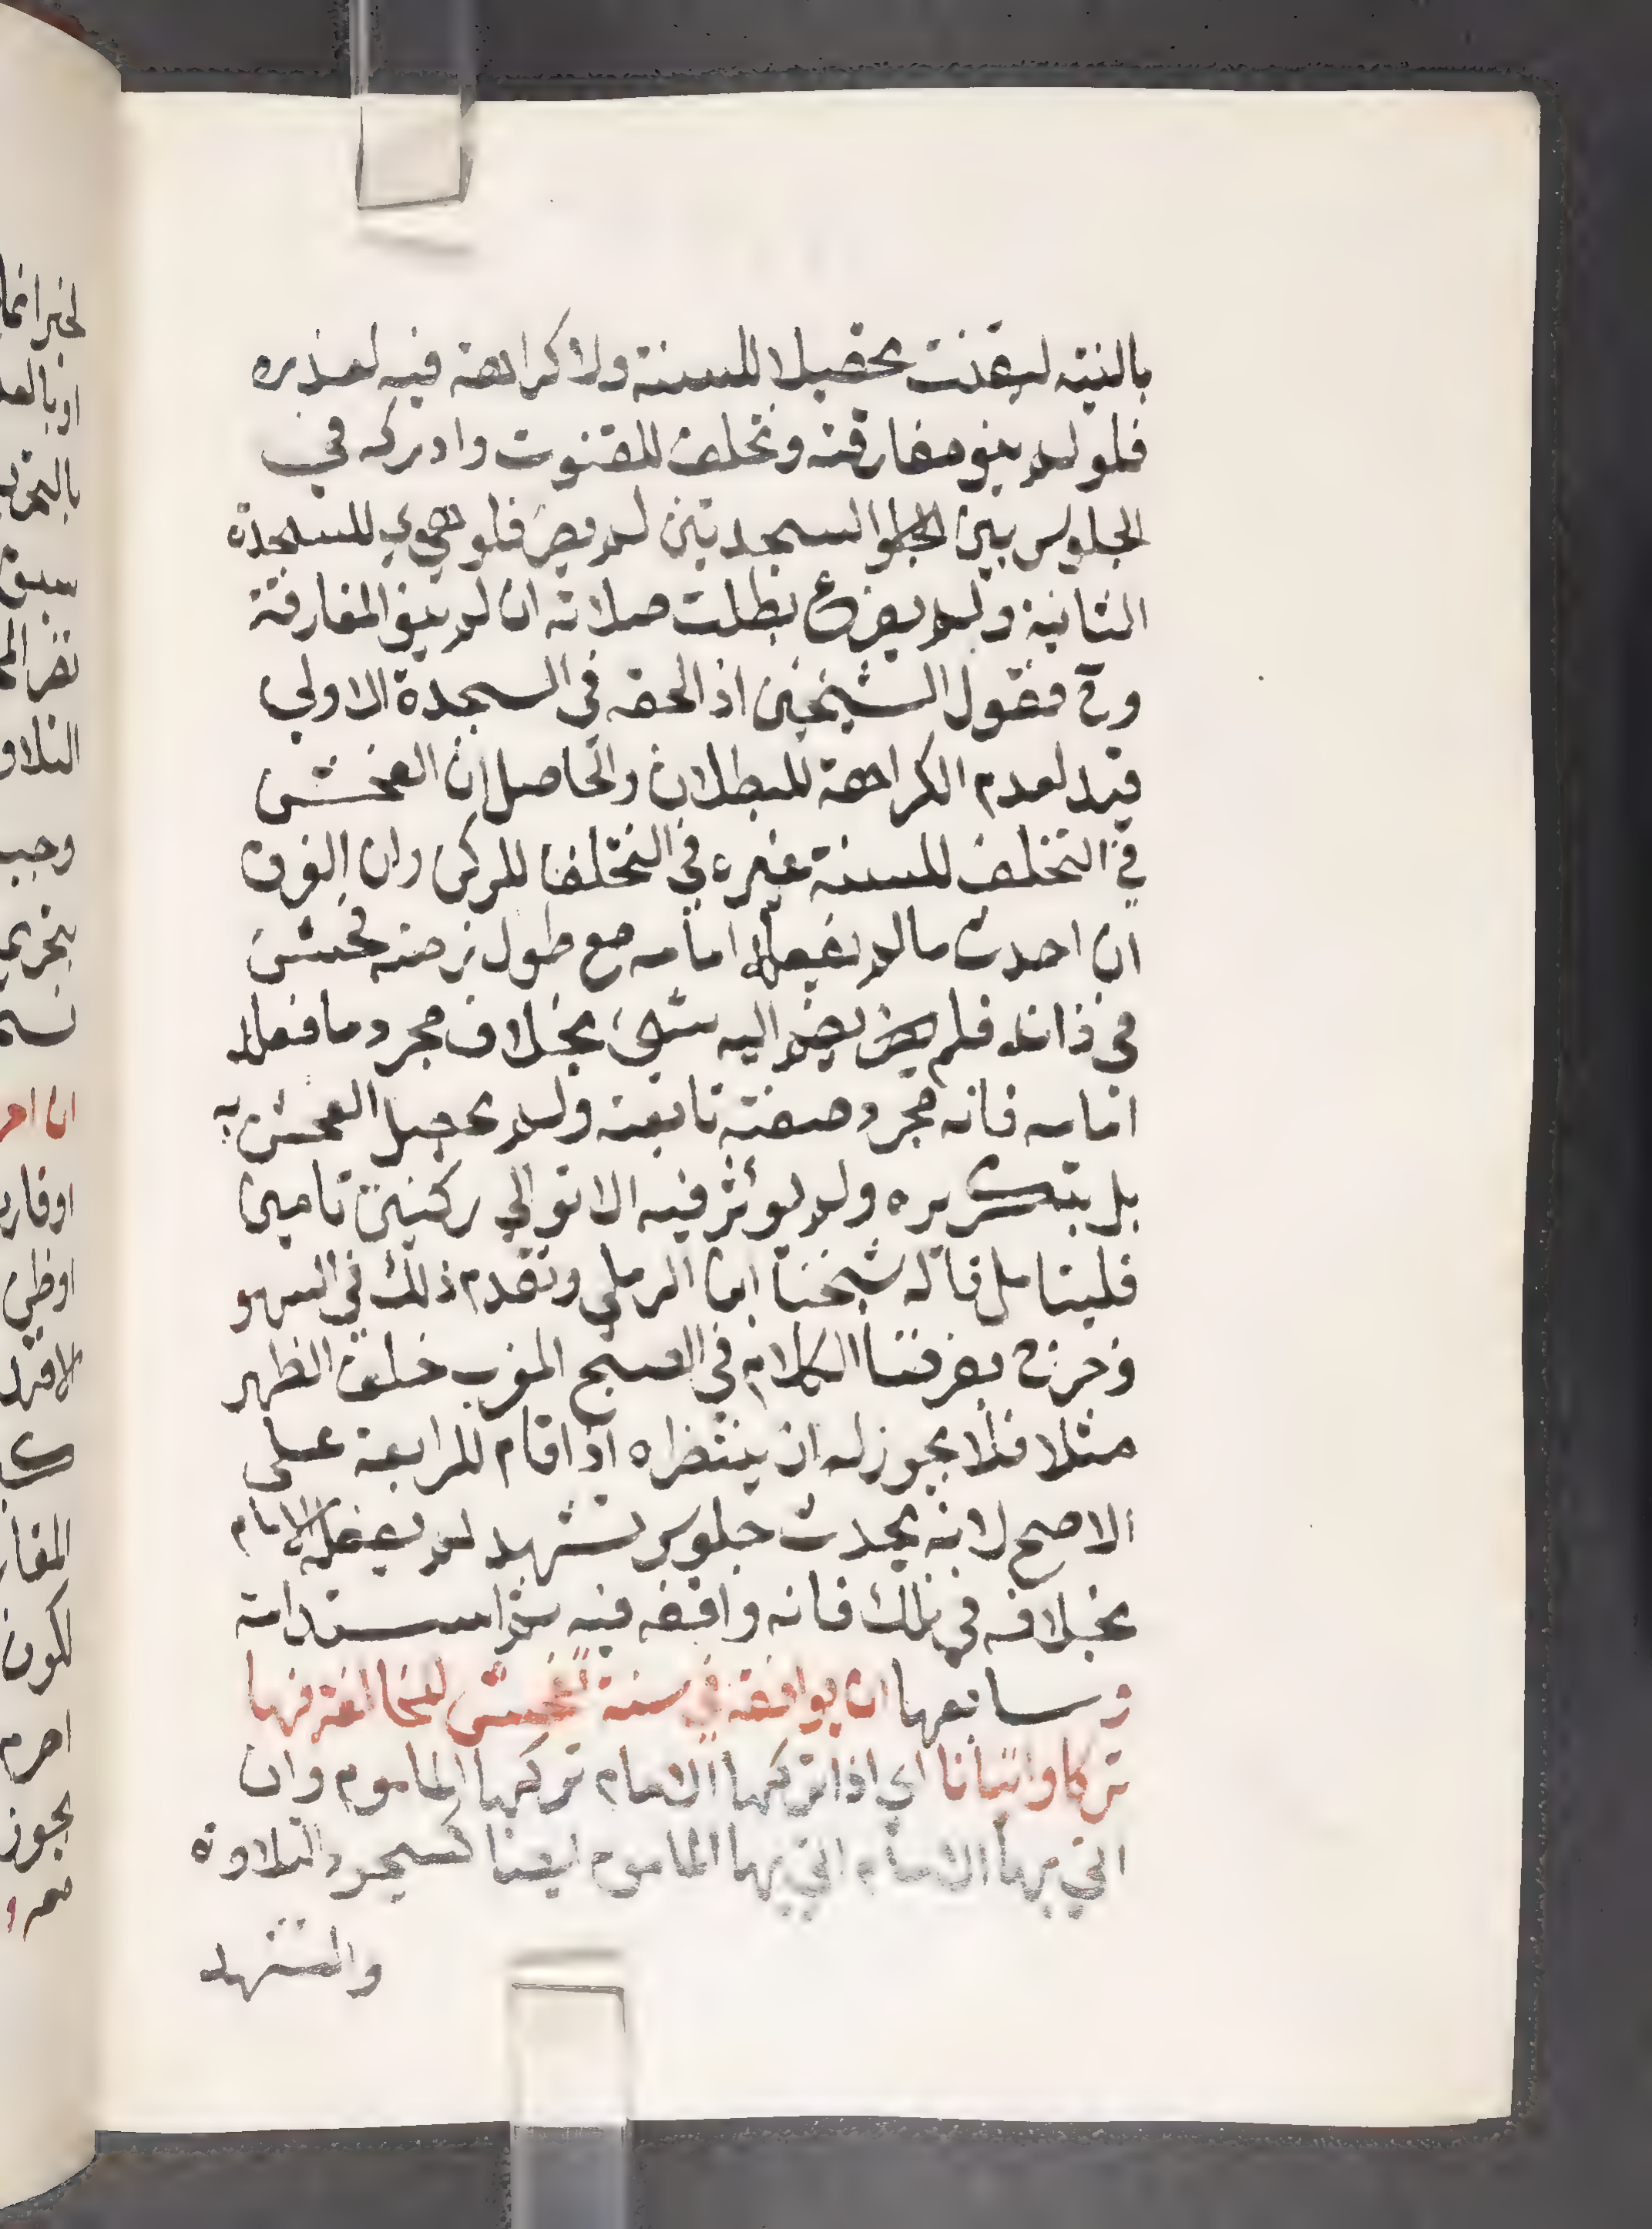 بالنية ليقنت تحصيلا للسنة ولا كراهة فيه لعذره
فلو لم ينو مفارقته وتخلف للقنوت وادركه في
الجلوس بين السجدتين لم يضر فلو هوي للسجدة
الثانية ولم يفرغ بطلت صلاته ان لم ينو المفارقة
وح فقول الشيخين اذ الحقه في السجدة الاولي
قيد لعدم الكراهة للبطلان والحاصل ان الفحش
في التخلف للسنة غيره في التخلف للركن وان الفرق
ان احدث مالم يفعله امامه مع طول زمنه فحش
في ذاته فلم يضم اليه شيء بخلاف مجرد ما فعله
امامه فانه مجرد صفة تابعة ولم يحصل الفحش به
بل بتكريره ولم يوثر فيه الا توالي ركنين تامين
فليتامل قاله شيخنا ابن الرملي وتقدم ذلك في السهو
وخرج بفرضنا الكلام في الصبح المغرب خلف الظهر
مثلا فلا يجوز له ان ينتظره اذا قام للرابعة علي
الاصح لانه يحدث جلوس تشهد لم يفعله الامام
بخلافه في تلك فانه وافقه فيه ثم استدامه
وسابعها ان يوافقه في سنة تفحش المخالفة فيها
تركا واتيانا اي اذا تركها الامام تركها الماموم وان
اتي بها الامام اتي بها الماموم ايضا كسجود التلاوة
والتشهد